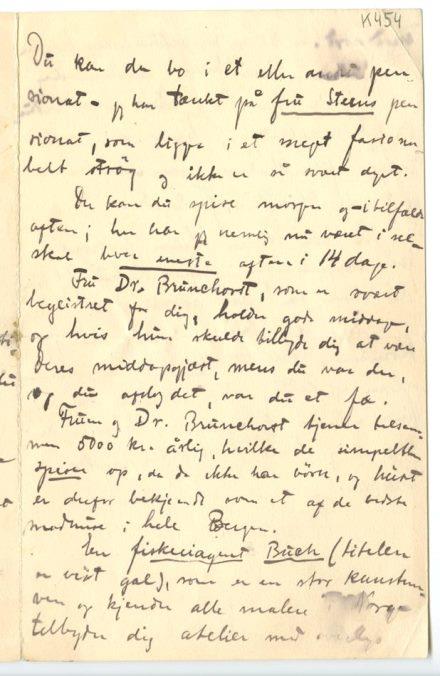 K454
Du kan da bo i et eller andet pen
sionat - jeg har tænkt på fru Steens pen
sionat, som ligger i et meget fasiona
belt strøg og ikke er så svært dyrt.
Der kan du spise morgen og - i tilfælde
aften; her har jeg nemlig nu været i sel-
skab hver eneste aften i 14 dage.
Fru Dr. Brunchorst, som er svært
begeistret for dig, holder gode middage,
og hvis hun skulde tilbyde dig at være
deres middagsgjæst, mens du var der,
og du afslog det, var du et fæ.
Fruen og Dr. Brunchorst tjener tilsam-
men 5000 kr. årlig, hvilke de simpelthen
spiser op, da de ikke har börn, og huset
er derfor bekjendt som et af de bedste
madhuse i hele Bergen.
En fiskeriagent Buch (titelen
er vist gal), som er en stor kunst-
ven og kjender alle malere i Norge
tilbyder dig atelier med